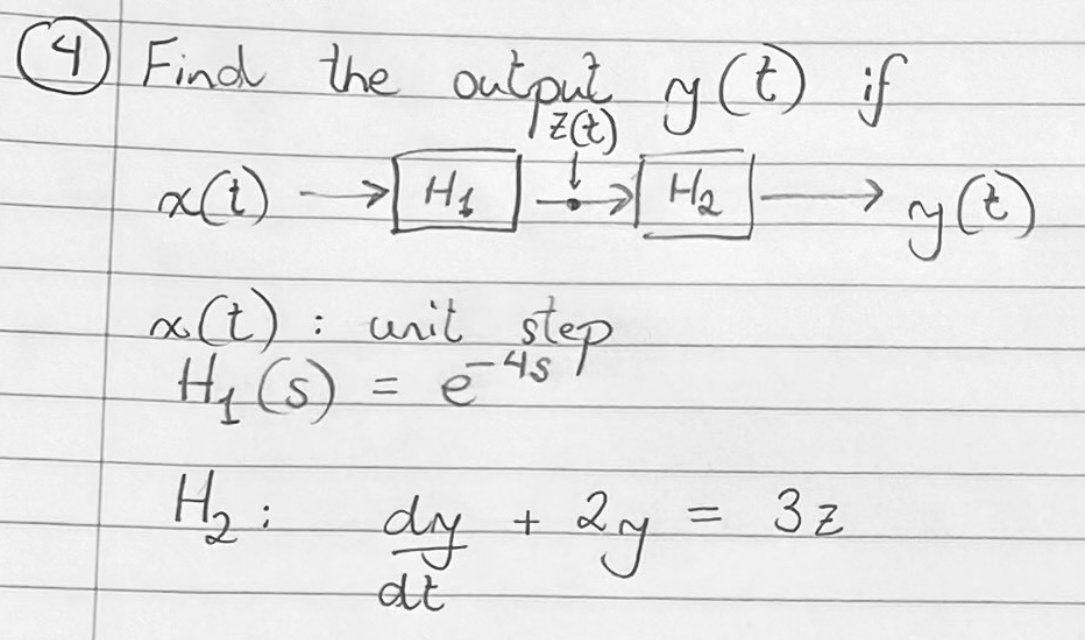 ④ Find the output y(t) if
z(t)
x(t) → H₁ → H₂ → y(t)
x(t) : unit step
H₁(s) = e^{-4s}
H₂ : dy/dt + 2y = 3z